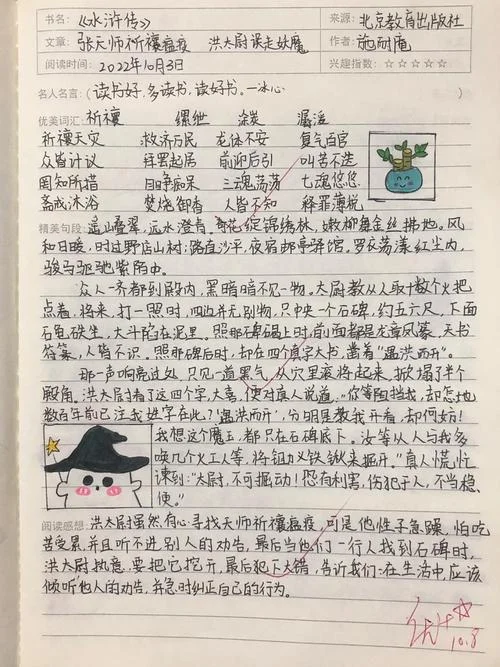 书名：《水浒传》 来源：北京教育出版社
文章：张天师祈禳瘟疫 洪太尉误走妖魔 作者：施耐庵
阅读时间：2022年10月3日 兴趣指数：☆☆☆☆☆
名人名言：（读书好，多读书，读好书。一冰心
优美词汇：祈禳 缧绁
祈禳天灾 救济万民 龙体不安 复气百官
众皆计议 拜罢起居 前迎后引 叫苦不迭
罔知所措 三魂荡荡 七魂悠悠
斋戒沐浴 焚烧御香 人皆不知 释罪薄税
精美句段：遥山叠翠，远水澄青。奇花绽锦绣林，嫩柳舞金丝拂地。风
和日暖，时过野店山村；路直沙平，夜宿邮亭驿馆。罗衣荡漾红尘内，
骏马驱驰紫陌中。
众人一齐都到殿内，黑暗暗不见一物。太尉教从人取十数个火把
点着，将来，打一照时，四边并无别物，只中央一个石碑，约五六尺，下面
石龟趺坐，大斗陷在泥里。照那碑碣上时，前面都是龙章凤篆，天书
符箓，人皆不识。照那碑后时，却有四个真字大书，凿着“遇洪而开”。
那一声响亮过处，只见一道黑气，从穴里滚将起来，掀塌了半个
殿角。洪太尉看了这四个字，大喜，便对真人说道：“你等阻挡我，却怎地
数百年前已注我姓字在此？‘遇洪而开’，分明是教我开看，却何妨！
我想这个魔王，都只在石碑底下。汝等从人与我多
唤几个火工人等，将锄头铁锹来掘开。”真人慌忙
谏到：“太尉，不可掘动！恐有利害，伤犯于人，不当稳
便。”
阅读感想：洪太尉虽然有心寻找天师祈禳瘟疫，可是他性子急躁，怕吃
苦受累，并且听不进别人的劝告，最后当他们一行人找到石碑时，
洪太尉执意要把它挖开，最后犯下大错，告诉我们：在生活中，应该
倾听他人的劝告，并急时纠正自己的行为。
优+☆
10.8